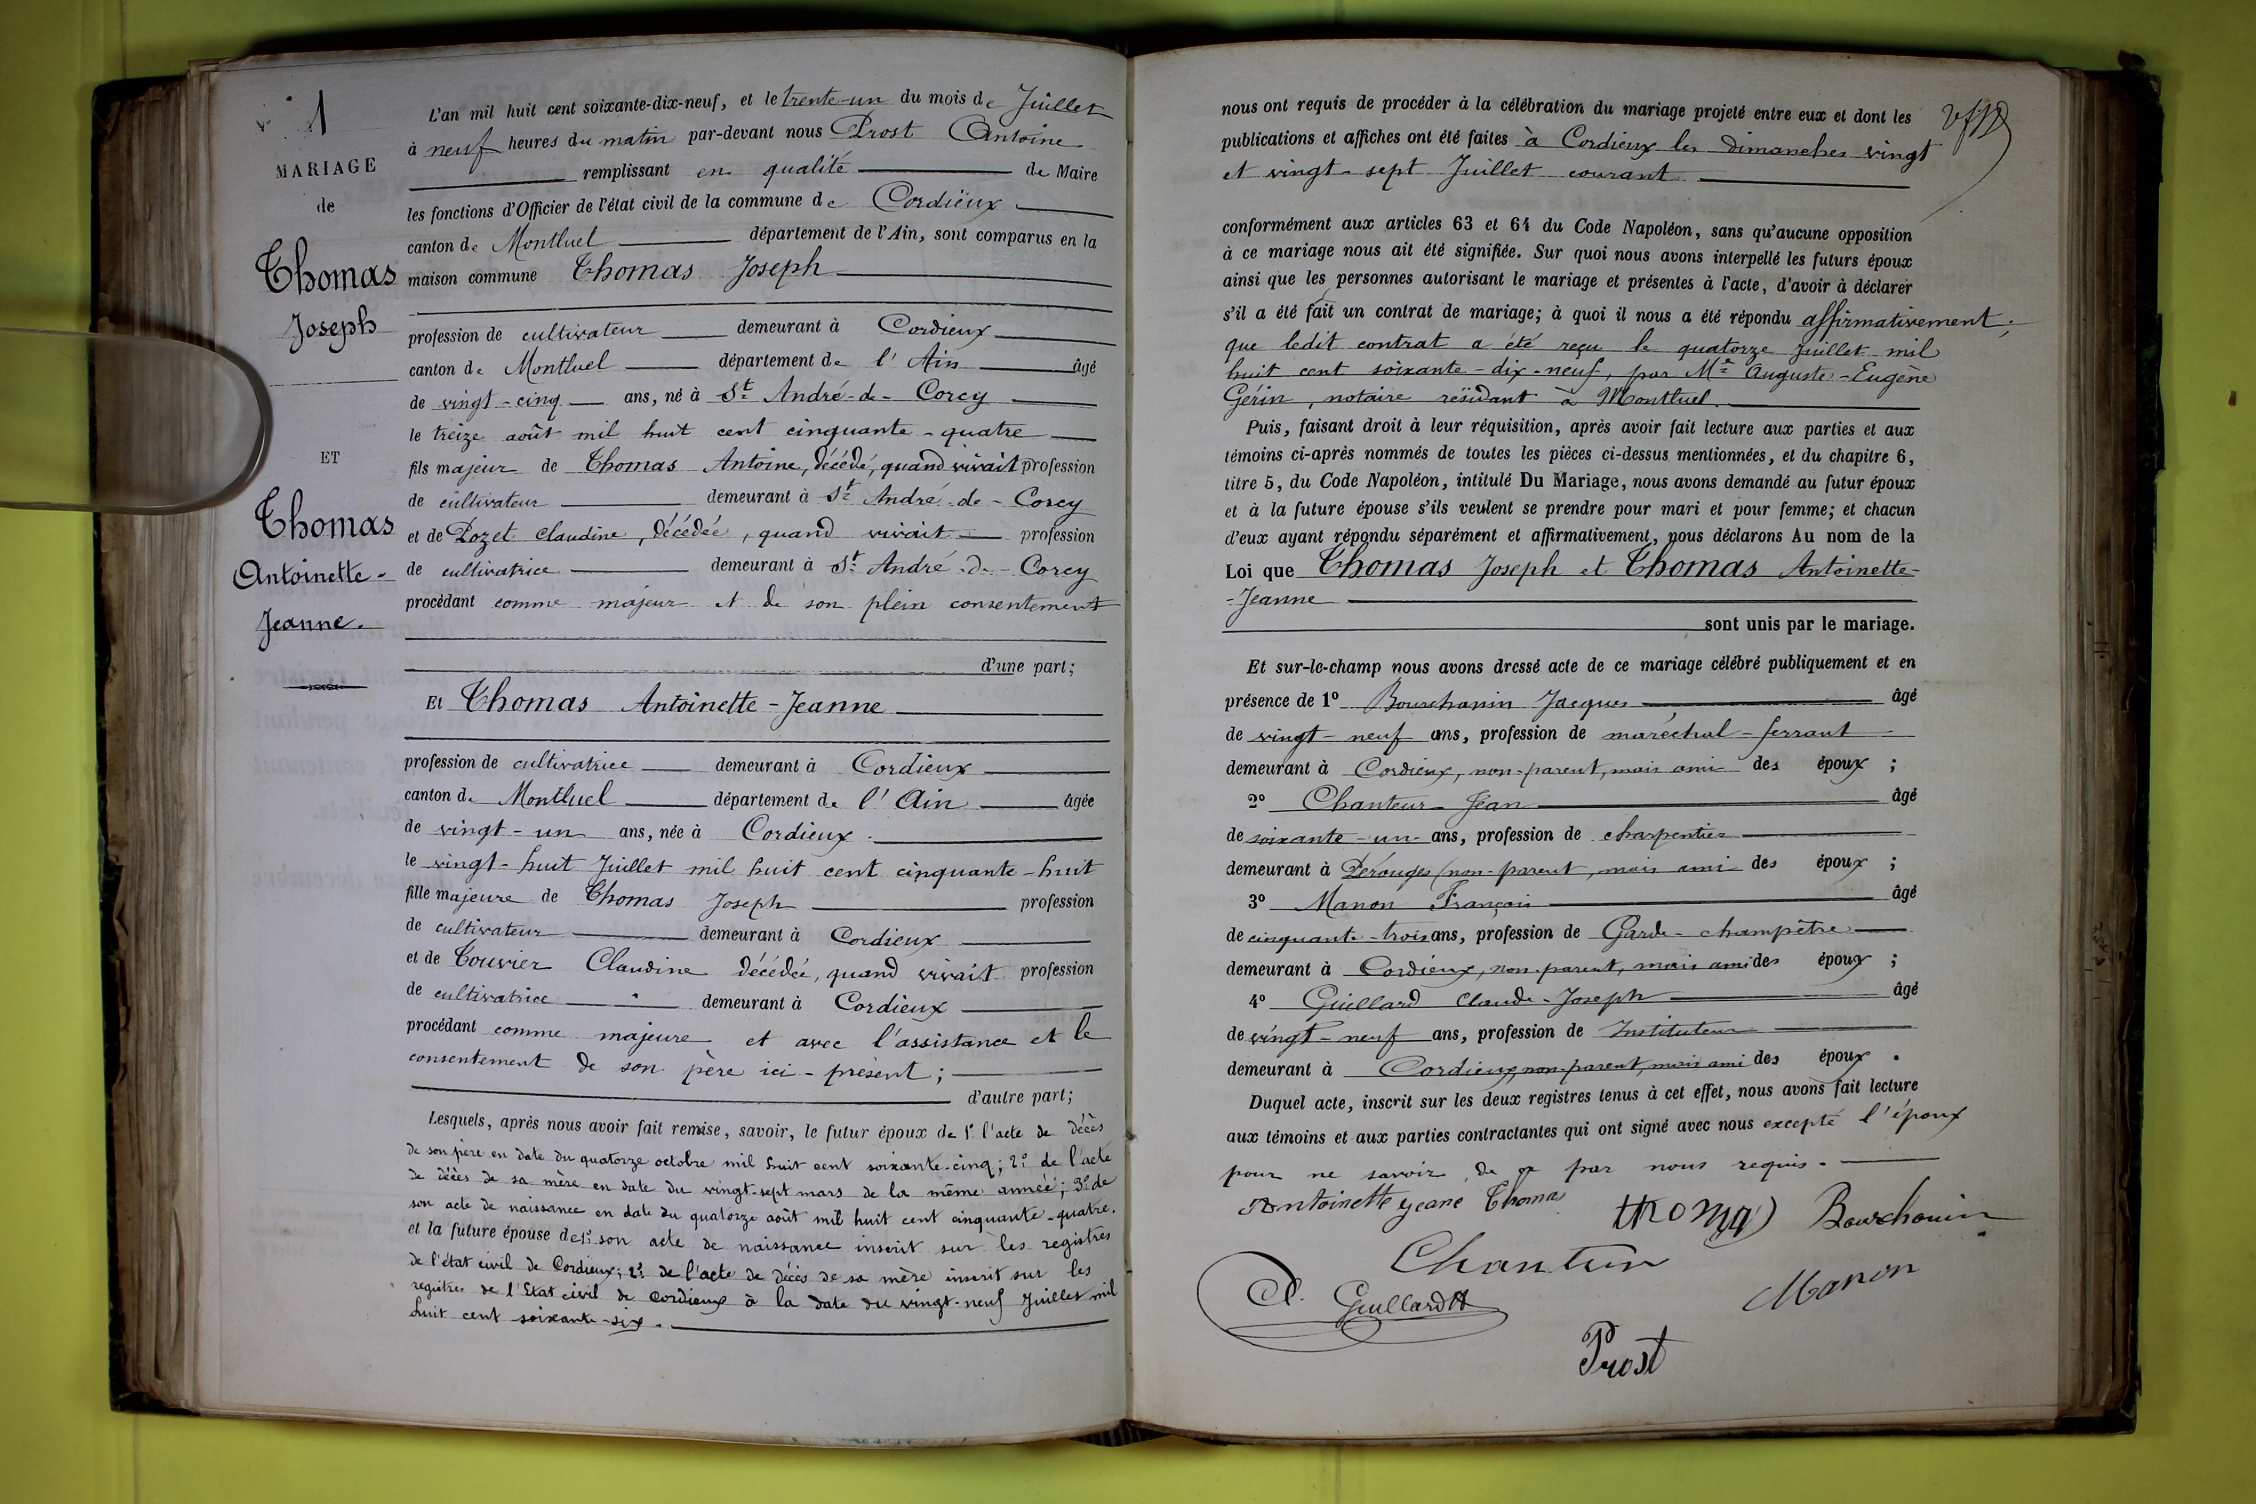 1
MARIAGE
de
Thomas
Joseph
ET
Thomas
Antoinette-
Jeanne.
L'an mil huit cent soixante-dix-neuf, et le trente-un du mois de Juillet
à neuf heures du matin par-devant nous Prost Antoine
remplissant en qualité de Maire
les fonctions d'Officier de l'état civil de la commune de Cordieux
canton de Montluel département de l'Ain, sont comparus en la
maison commune Thomas Joseph
profession de cultivateur demeurant à Cordieux
canton de Montluel département de l'Ain âgé
de vingt-cinq ans, né à St André-de-Corcy
le treize août mil huit cent cinquante-quatre
fils majeur de Thomas Antoine, décédé, quand vivait profession
de cultivateur demeurant à St André-de-Corcy
et de Pozet Claudine, décédée, quand vivait profession
de cultivatrice demeurant à St André-de-Corcy
procédant comme majeur et de son plein consentement
d'une part;
Et Thomas Antoinette-Jeanne
profession de cultivatrice demeurant à Cordieux
canton de Montluel département de l'Ain âgée
de vingt-un ans, née à Cordieux.
le vingt-huit Juillet mil huit cent cinquante-huit
fille majeure de Thomas Joseph profession
de cultivateur demeurant à Cordieux
et de Touvier Claudine décédée, quand vivait profession
de cultivatrice demeurant à Cordieux
procédant comme majeure et avec l'assistance et le
consentement de son père ici-présent;
d'autre part;
Lesquels, après nous avoir fait remise, savoir, le futur époux de 1° l'acte de décès
de son père en date du quatorze octobre mil huit cent soixante-cinq; 2° de l'acte
de décès de sa mère en date du vingt-sept mars de la même année; 3° de
son acte de naissance en date du quatorze août mil huit cent cinquante-quatre.
et la future épouse de 1° son acte de naissance inscrit sur les registres
de l'état civil de Cordieux; 2° de l'acte de décès de sa mère inscrit sur les
registres de l'Etat civil de Cordieux à la date du vingt-neuf Juillet mil
huit cent soixante-six.
nous ont requis de procéder à la célébration du mariage projeté entre eux et dont les
publications et affiches ont été faites à Cordieux les dimanches vingt
et vingt-sept Juillet courant
conformément aux articles 63 et 64 du Code Napoléon, sans qu'aucune opposition
à ce mariage nous ait été signifiée. Sur quoi nous avons interpellé les futurs époux
ainsi que les personnes autorisant le mariage et présentes à l'acte, d'avoir à déclarer
s'il a été fait un contrat de mariage; à quoi il nous a été répondu affirmativement;
que ledit contrat a été reçu le quatorze Juillet mil
huit cent soixante-dix-neuf, par Me Auguste-Eugène
Gérin, notaire résidant à Montluel.
Puis, faisant droit à leur réquisition, après avoir fait lecture aux parties et aux
témoins ci-après nommés de toutes les pièces ci-dessus mentionnées, et du chapitre 6,
titre 5, du Code Napoléon, intitulé Du Mariage, nous avons demandé au futur époux
et à la future épouse s'ils veulent se prendre pour mari et pour femme; et chacun
d'eux ayant répondu séparément et affirmativement, nous déclarons Au nom de la
Loi que Thomas Joseph et Thomas Antoinette-
-Jeanne
sont unis par le mariage.
Et sur-le-champ nous avons dressé acte de ce mariage célébré publiquement et en
présence de 1° Bourchanin Jacques âgé
de vingt-neuf ans, profession de maréchal-ferrant
demeurant à Cordieux, non-parent, mais ami des époux ;
2° Chanteur Jean âgé
de soixante-un ans, profession de charpentier
demeurant à Pérouges, non-parent, mais ami des époux ;
3° Manon François âgé
de cinquante-trois ans, profession de Garde-champêtre
demeurant à Cordieux, non-parent, mais ami des époux ;
4° Guillard Claude-Joseph âgé
de vingt-neuf ans, profession de Instituteur
demeurant à Cordieux, non-parent, mais ami des époux .
Duquel acte, inscrit sur les deux registres tenus à cet effet, nous avons fait lecture
aux témoins et aux parties contractantes qui ont signé avec nous excepté l'époux
pour ne savoir, de ce par nous requis.
Antoinette jeane Thomas thomas Bourchanin
Chanteur
Manon
Guillard
Prost